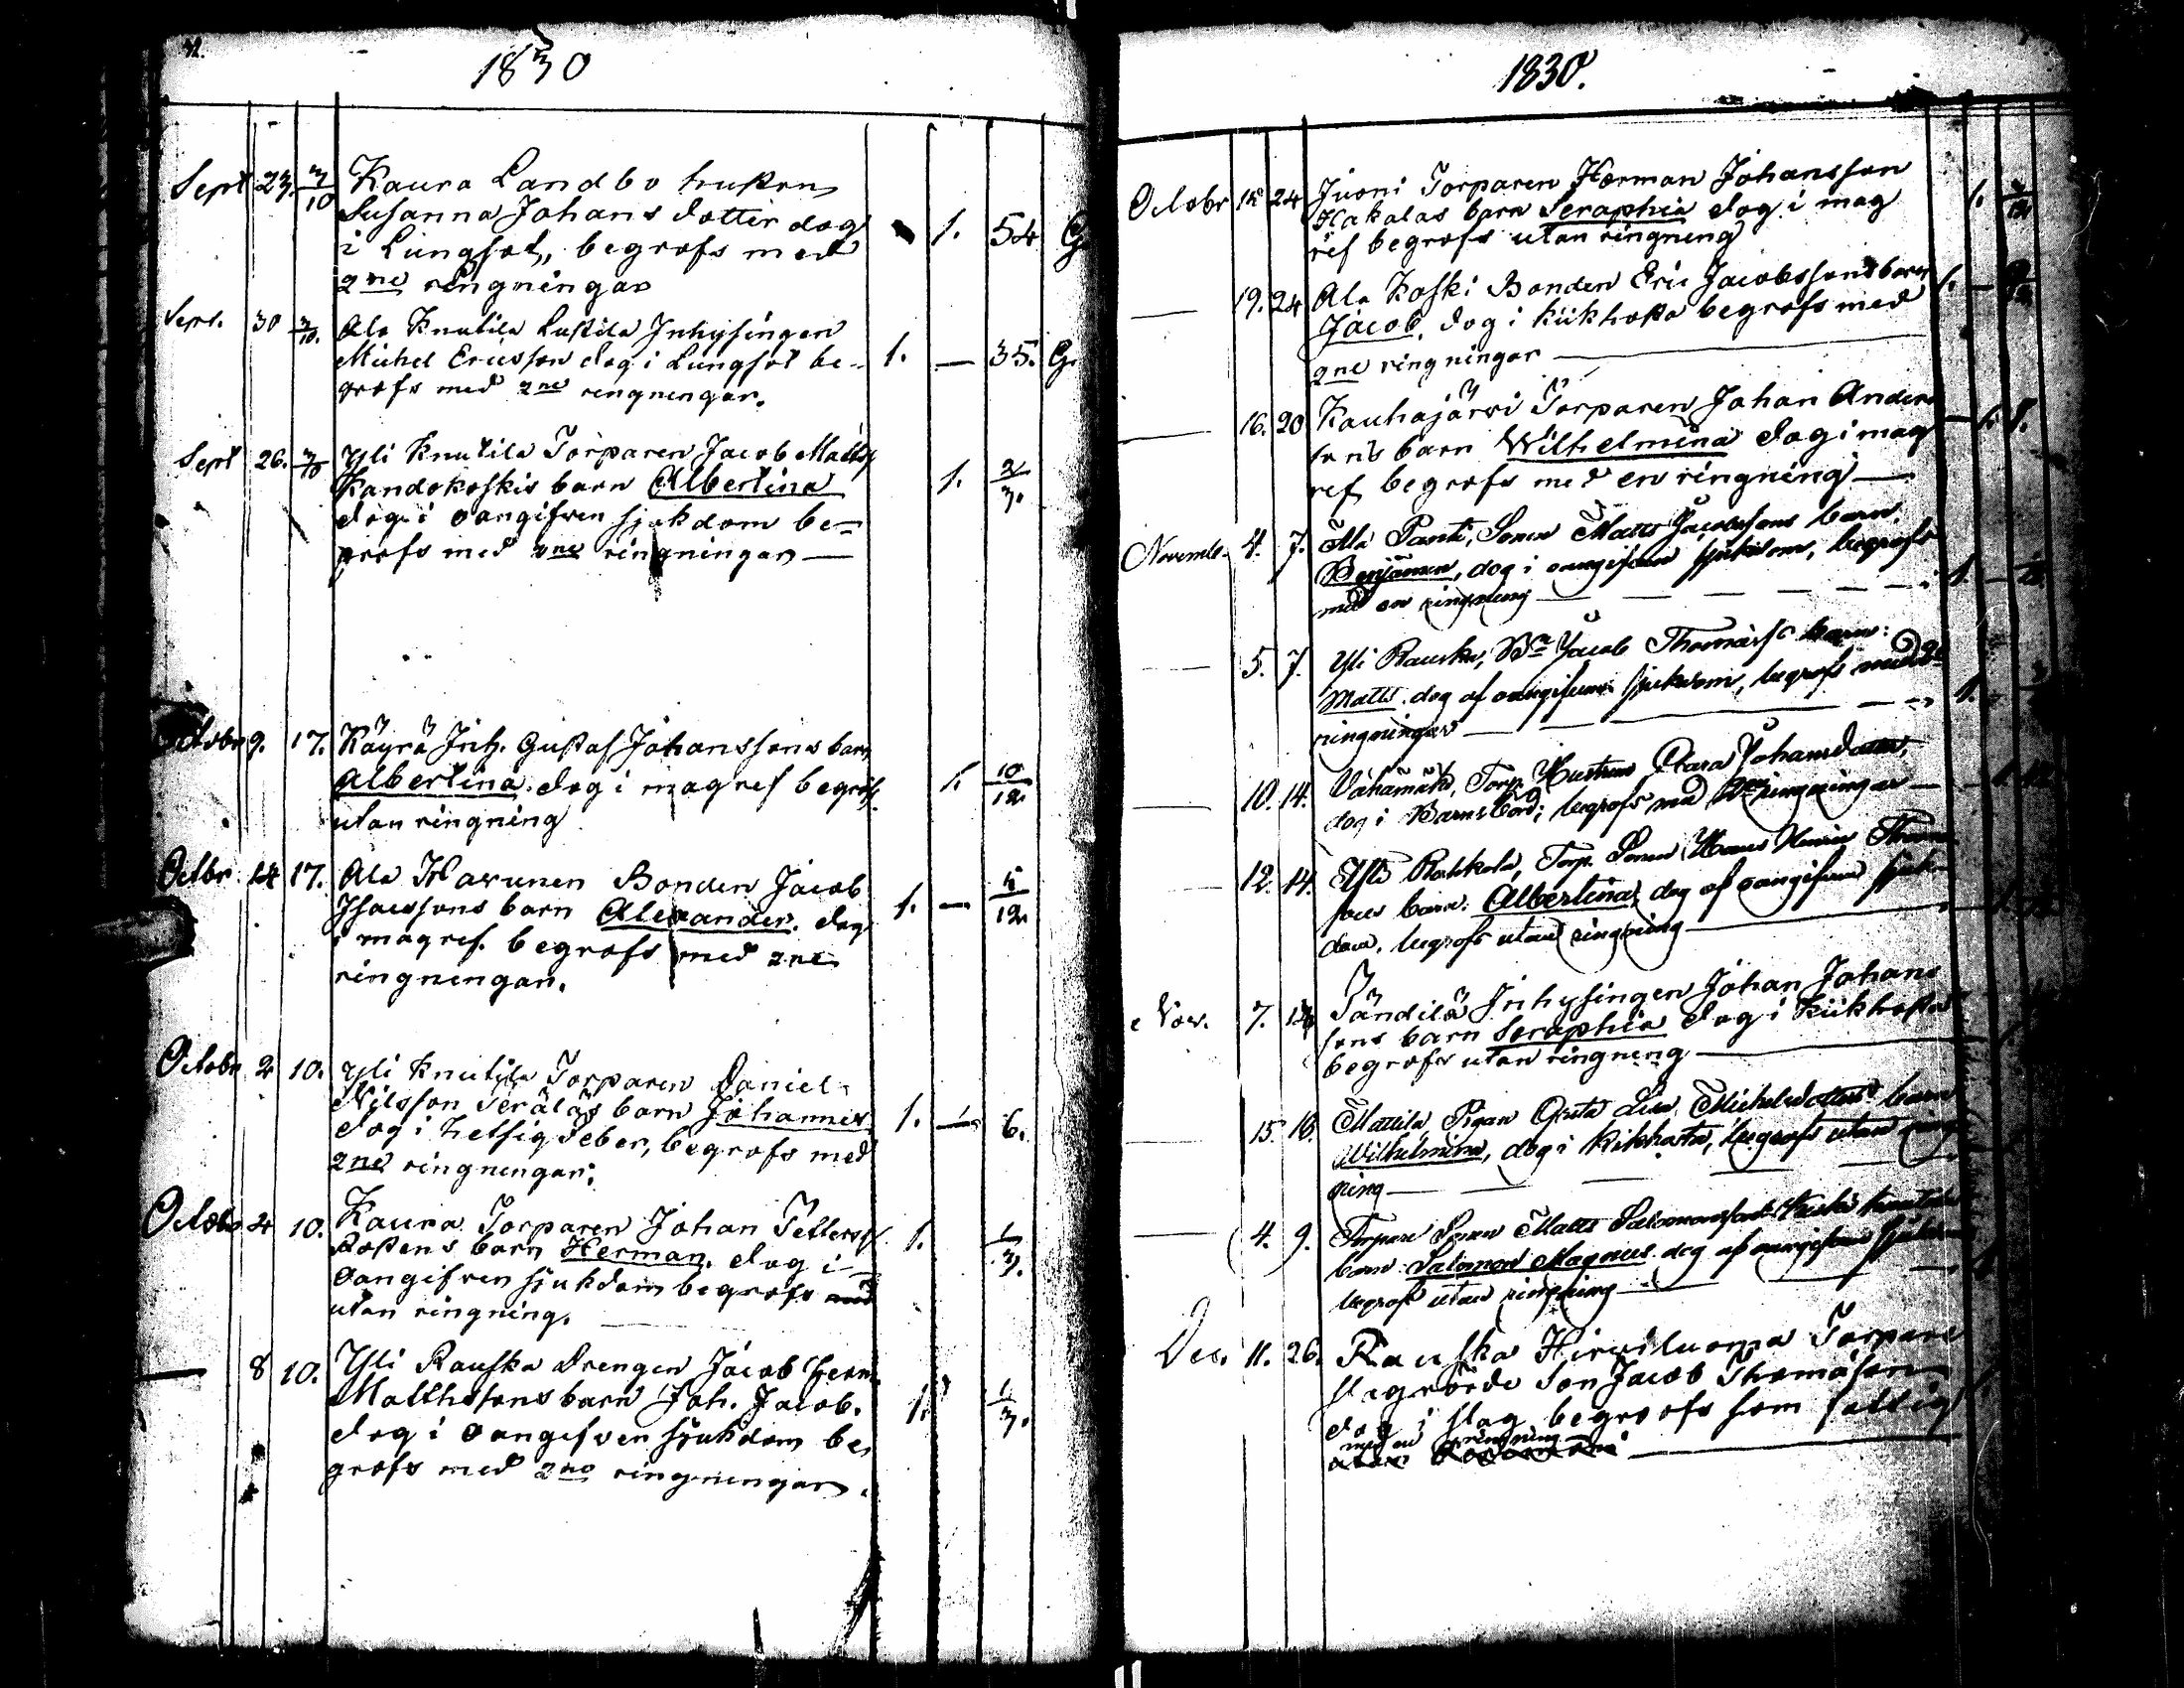 42.
1830
Sept 23. 3/10 Kaura Landbo hustrun
Susanna Johans dotter dog
i Lungsot, begrofs med 1. 54 G
2ne ringningar
Sept. 30 3/10. Ala Knutila Lustila Inhysingen
Michel Ericsson dog i Lungsot be- 1. — 35. G.
grofs med 2ne ringningar.
Sept 26. 3/10 Yli Knutila Torparen Jacob Matts
Kandokoskis barn Albertina 1. 2/3.
dog i oangifven sjukdom be-
grofs med 2ne ringningar —
October 9. 17. Käyrä Inh. Gustaf Johanssons barn
Albertina. dog i magref begrofs 1. 10/12
utan ringning
Octbr 14 17. Ala Havunen Bonden Jacob
Isacssons barn Alexander. dog 1. — 5/12
i magref. begrofs med 2ne
ringningar.
October 2 10. Yli Knutila Torparen Daniel
Nilsson Seräläs barn Johannes
dog i hetsig feber, begrofs med 1. — 6.
2ne ringningar.
October 4 10. Kaura Torparen Johan Petterss
Rosens barn Herman. dog i 1. 1/3.
oangifven sjukdom begrofs med
utan ringning.
— 8 10. Yli Rauska Drengen Jacob Herm.
Matthssons barn Joh. Jacob. 1. 1/3.
dog i oangifven sjukdom be
grofs med 2ne ringningar.
1830.
October 18 24 Juoni Torparen Herman Johansson
Kakalas barn Seraphia dog i mag 1. /12
ref begrofs utan ringning
— 19. 24 Ala Koski Bonden Eric Jacobssons barn 1. —
Jacob, dog i kikhosta begrofs med
2ne ringningar —
— 16. 20 Kauhajärvi Torparen Johan Anders
sons barn Wilhelmina dog i mag — 1. 8.
ref begrofs med en ringning —
Novemb. 4. 7. Ala Panti, Sonen Matts Jacobssons barn
Benjamin, dog i oangifven sjukdom, begrofs
med en ringning — 1. —
— 5. 7. Yli Rauska, Bn Jacob Thomass barn:
Matts. dog af oangifven sjukdom, begrofs med 2
ringningar — 1. —
— 10. 14. Vähämäki, Torp. Hustrun Clara Johansdotter,
dog i Barnsbörd; begrofs med 2ne ringningar —
— 12. 14. Yli Rahkola, Torp. Sonen Hans Henric Thomas
sons barn: Albertina, dog af oangifven sjuk-
dom, begrofs utan ringning —
Nov. 7. 14 Tändilä Inhysingen Johan Johans
sons barn Seraphia dog i Kikhosta
begrofs utan ringning —
— 15. 16. Mattila Pigan Greta Lisa Michelsdotters barn
Wilhelmina, dog i kikhosta, begrofs utan ring
ning —
— 4. 9. Torpare Sonen Matts Salomonsson
barn Salomon Magnus. dog af oangifven sjukdom
begrofs utan ringning —
Dec. 11. 26. Rauska Hirviluoma Torpare
slagrörde Son Jacob Thomasson
dog i slag begrofs som fattig
med en ringning —